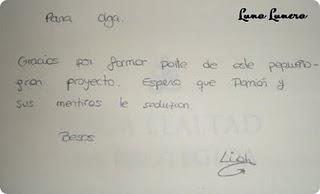 Luno Lunero
Para Olga.
Gracias por formar parte de este pequeño-
gran proyecto. Espero que Damián y
sus mentiras te seduzcan
Besos
A LEALTAD
Liah